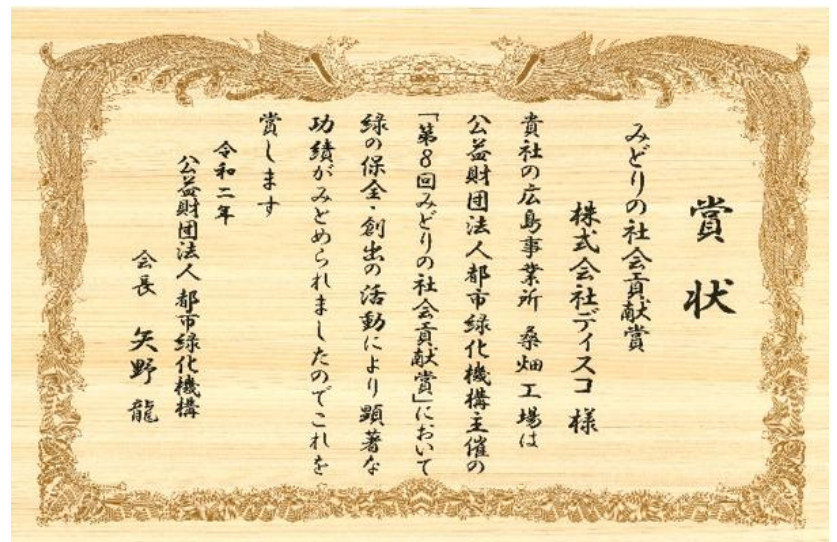 賞状
みどりの社会貢献賞
株式会社ディスコ 様
貴社の広島事業所 桑畑工場は
公益財団法人都市緑化機構主催の
「第8回みどりの社会貢献賞」において
緑の保全・創出の活動により顕著な
功績がみとめられましたのでこれを
賞します
令和二年
公益財団法人 都市緑化機構
会長 矢野 龍